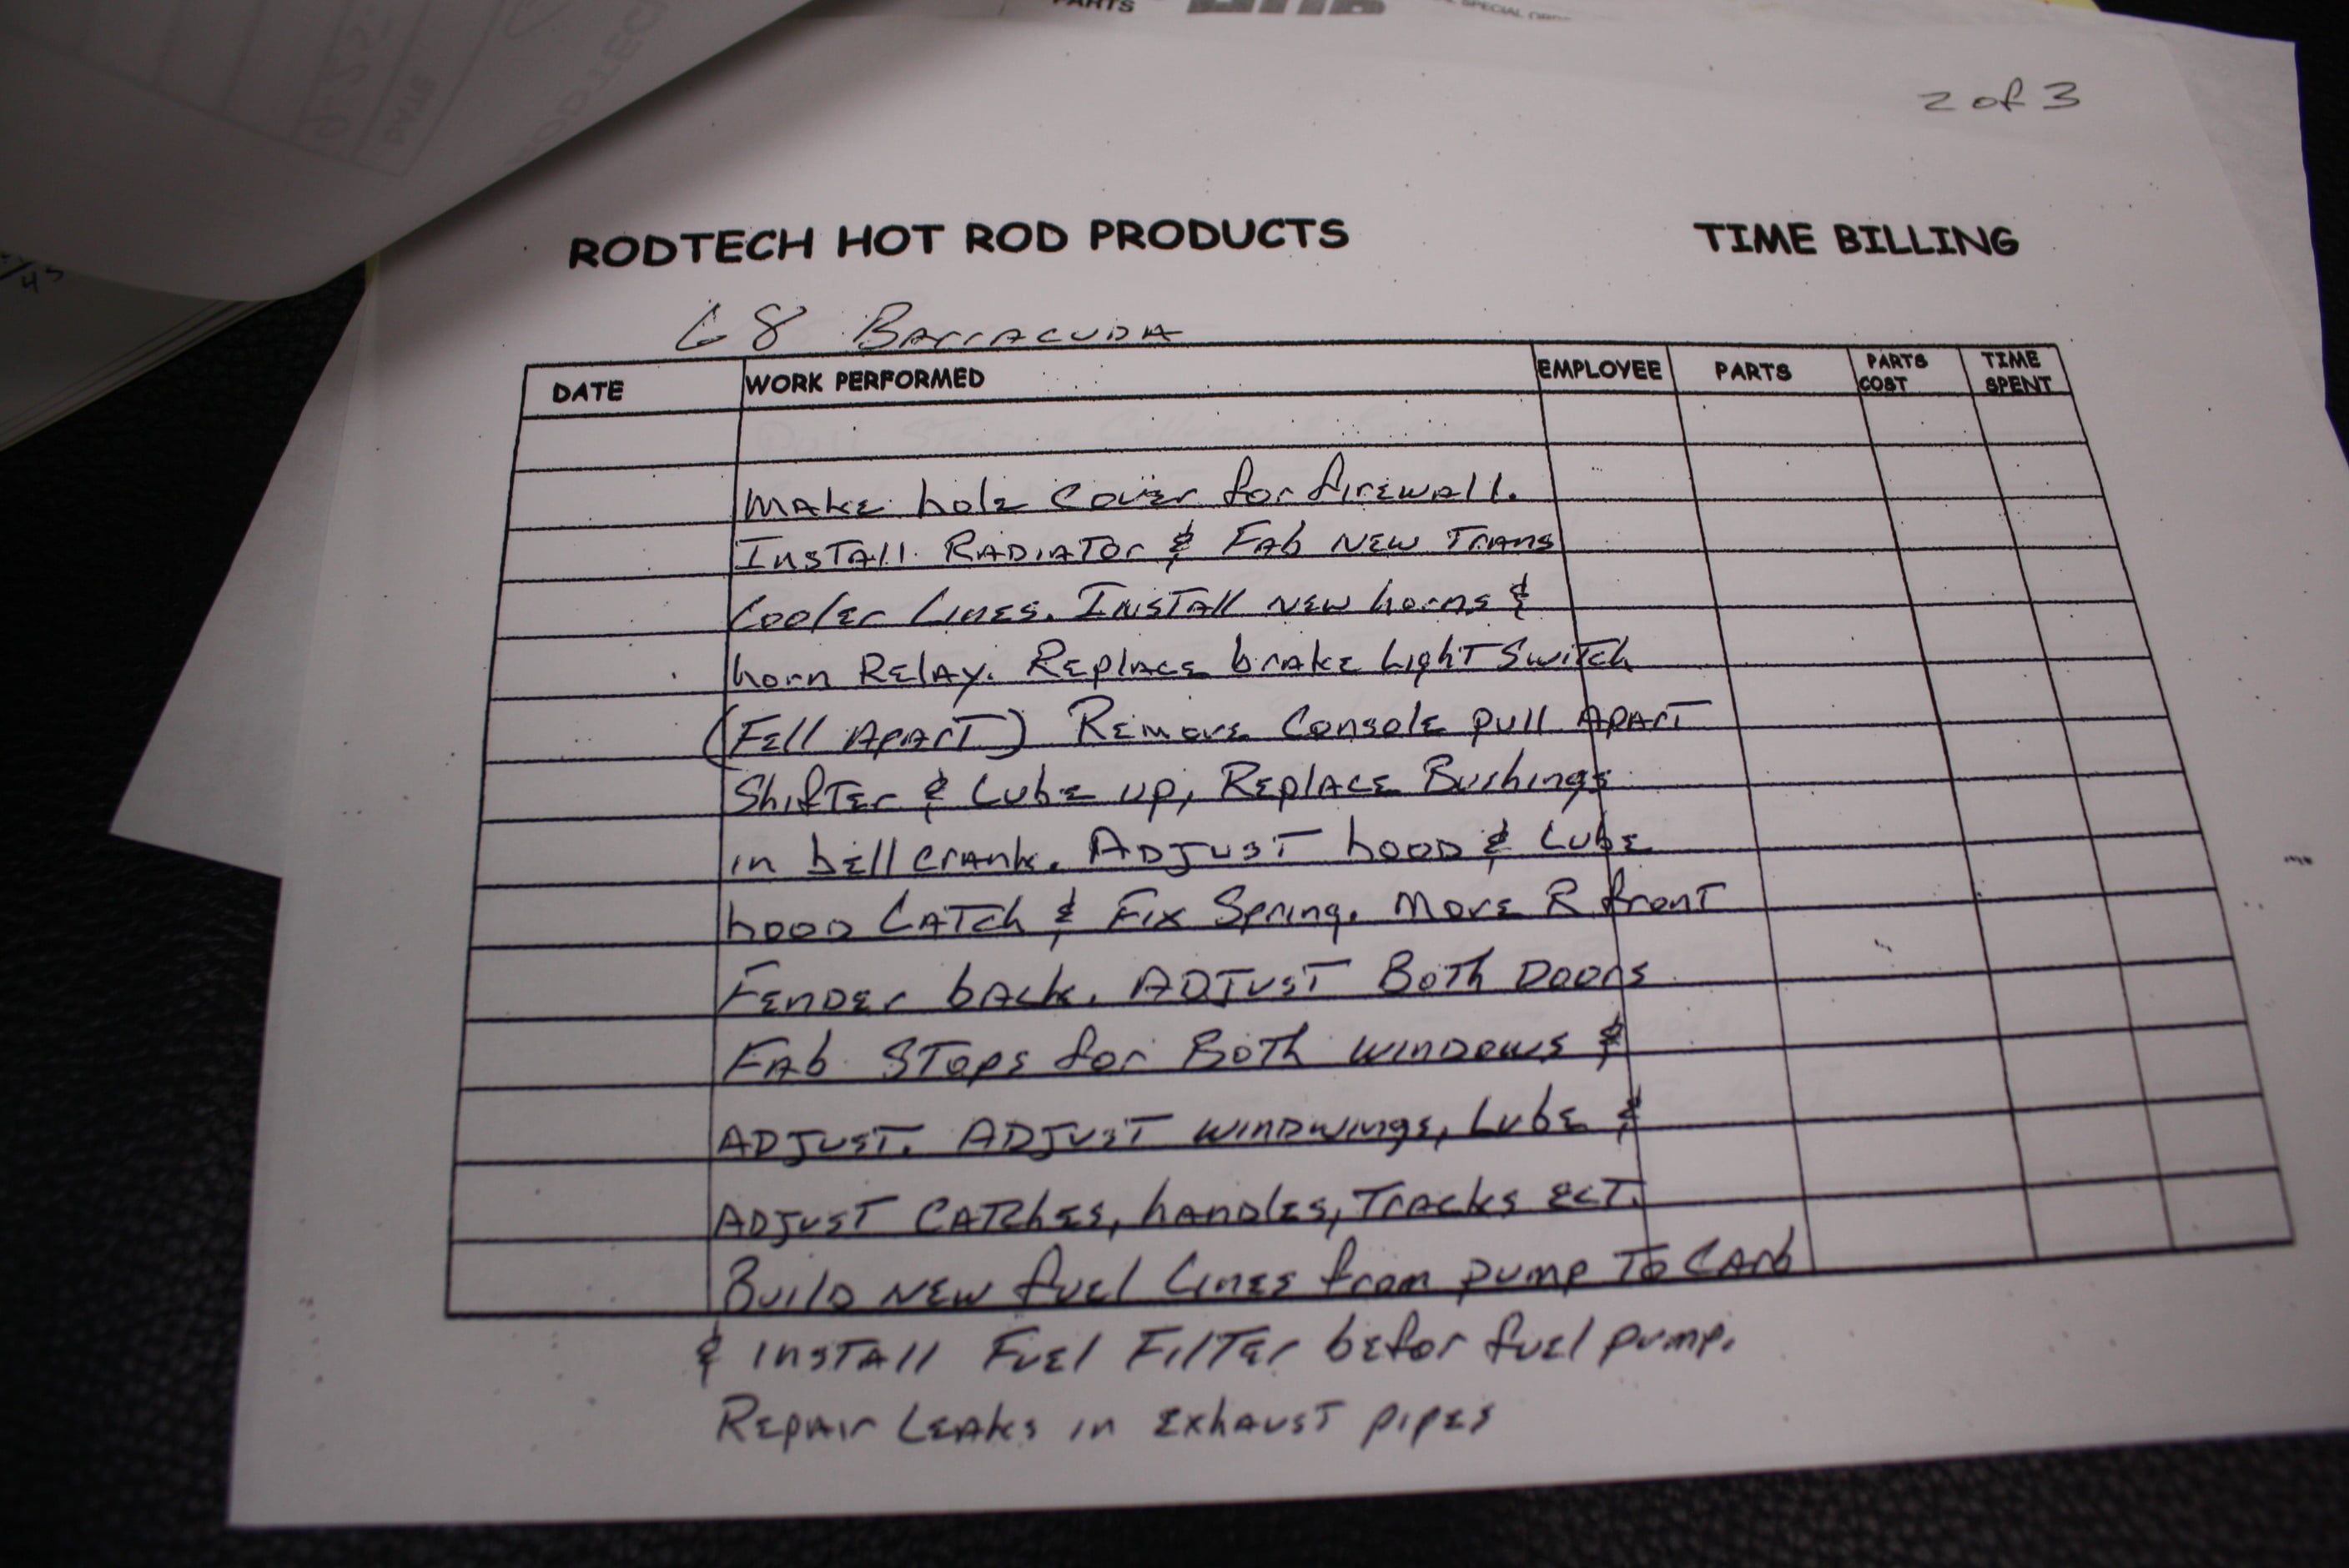 PARTS
2 of 3
RODTECH HOT ROD PRODUCTS
TIME BILLING
68 Barracuda
DATE WORK PERFORMED EMPLOYEE PARTS PARTS COST TIME SPENT
Make hole cover for firewall.
Install Radiator & Fab new Trans
Cooler Lines. Install new horns &
horn Relay. Replace brake Light Switch
(Fell Apart) Remove Console pull Apart
Shifter & Lube up, Replace Bushings
in bell crank. Adjust hood & Lube
hood Catch & Fix Spring. Move R front
Fender back. Adjust Both Doors
Fab Stops for Both windows &
Adjust. Adjust windwings, Lube &
Adjust Catches, handles, Tracks ect.
Build new fuel Lines from pump To Carb
& install Fuel Filter befor fuel pump.
Repair Leaks in Exhaust pipes